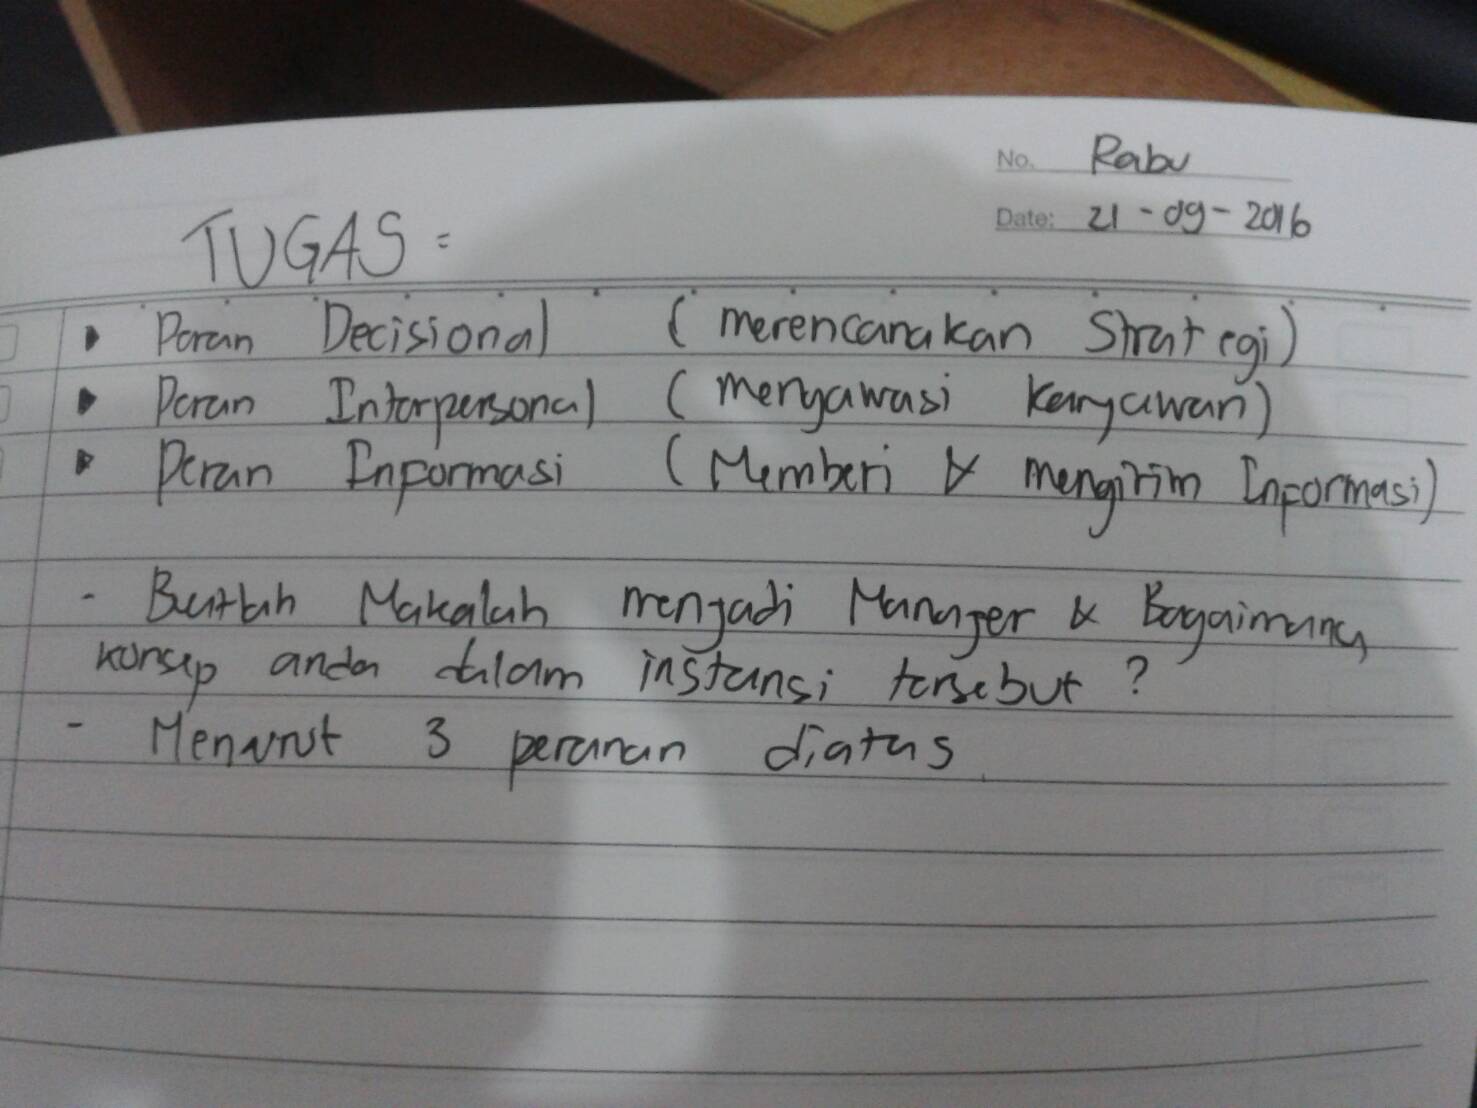 No. Rabu
Date: 21-09-2016
TUGAS =
Peran Decisional (merencanakan Strategi)
Peran Interpersonal (mengawasi karyawan)
Peran Informasi (Memberi & mengirim Informasi)
- Buatlah Makalah menjadi Manager & Bagaimana
konsep anda dalam instansi tersebut ?
- Menurut 3 peranan diatas